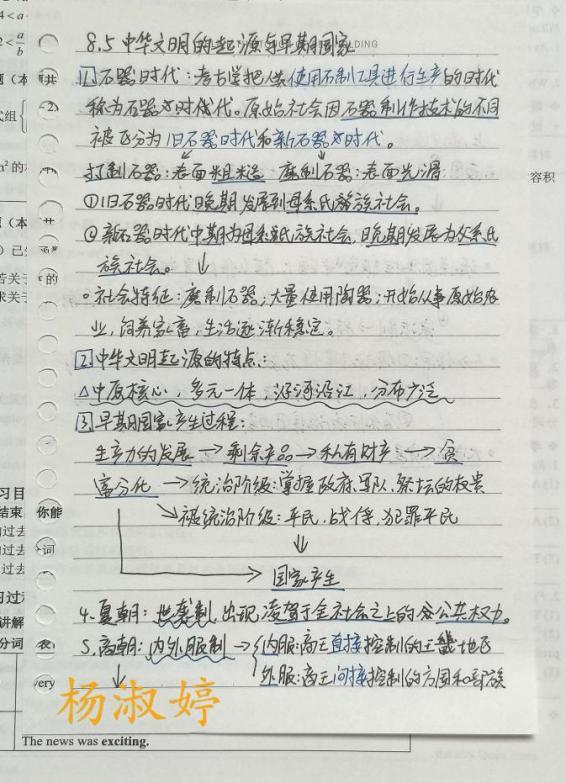 8.5 中华文明的起源与早期国家
LDING
1 石器时代：考古学把人类使用石制工具进行生产的时代
称为石器时代。原始社会因石器制作技术的不同
被区分为旧石器时代和新石器时代。
打制石器：表面粗糙 磨制石器：表面光滑
①旧石器时代晚期发展到母系氏族社会。
②新石器时代中期为母系氏族社会，晚期发展为父系氏
族社会。↓
。社会特征：磨制石器；大量使用陶器；开始从事原始农
业，饲养家畜，生活逐渐稳定。
2 中华文明起源的特点：
△中原核心，多元一体，沿河沿江，分布广泛
3 早期国家产生过程：
生产力的发展→剩余产品→私有财产→贫
富分化→统治阶级：掌握政府、军队、祭坛的权贵
↘被统治阶级：平民、战俘、犯罪平民
↓
→国家产生
4. 夏朝：世袭制，出现凌驾于全社会之上的公共权力。
5. 商朝：内外服制→内服：商王直接控制的王畿地区
↓ 外服：商王间接控制的方国和部族
杨淑婷
4<a
2<a/b
题（本
共
2)
式组
m²的
容积
题（本
共
) 已
苦关于
的
求关
习目
结束
你能
过去
词
过去
过去
习过
讲解
分词
表
very
The news was exciting.